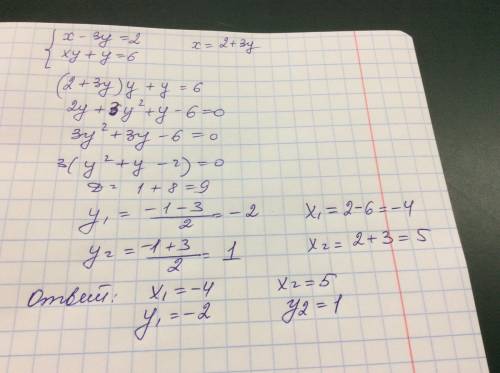 { x - 3y = 2      x = 2+3y
xy + y = 6
(2 + 3y)y + y = 6
2y + 3y² + y - 6 = 0
3y² + 3y - 6 = 0
3(y² + y - 2) = 0
D = 1 + 8 = 9
y₁ = (-1-3)/2 = -2      x₁ = 2-6 = -4
y₂ = (-1+3)/2 = 1      x₂ = 2+3 = 5
Ответ: x₁ = -4      x₂ = 5
y₁ = -2      y₂ = 1